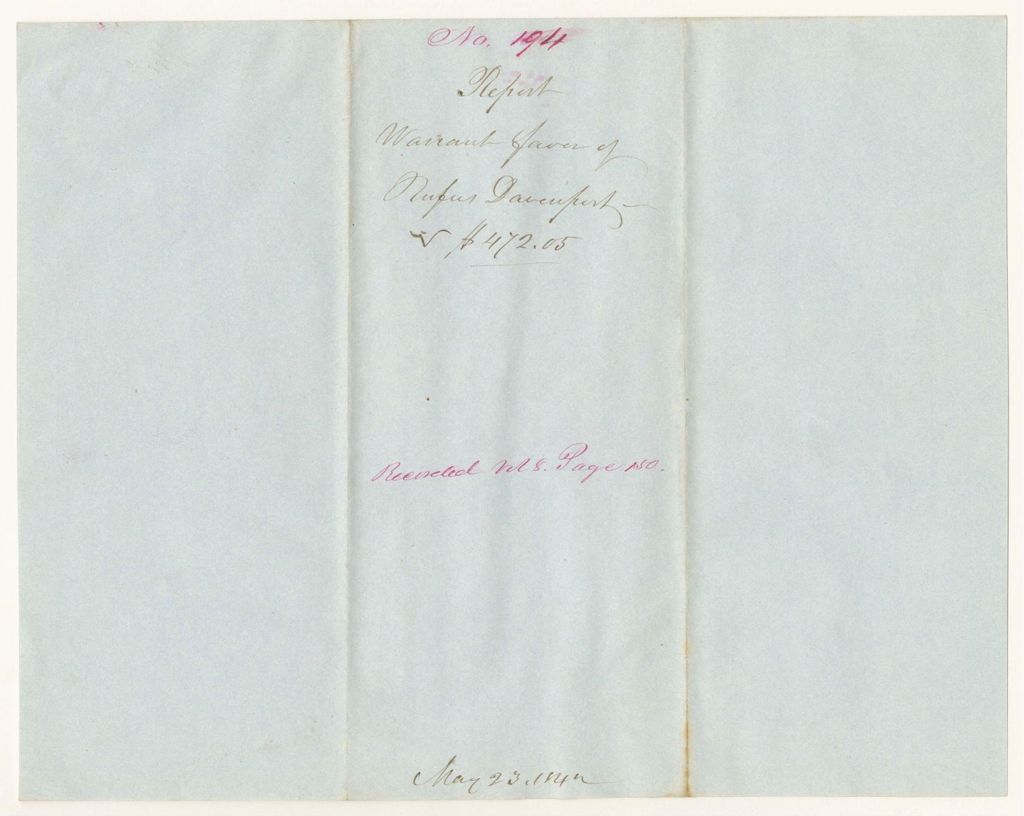 No. 194
Report
Warrant favor of
Rufus Davenport
$472.05
Recorded Vol 8. Page 150.
May 23.